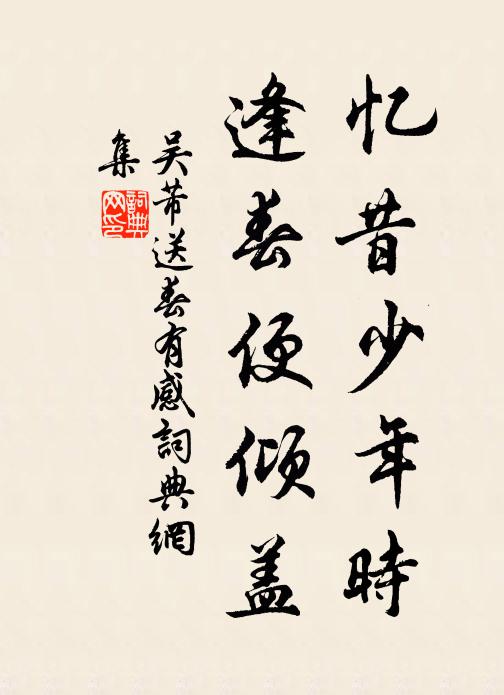 忆昔少年時
逢春便倾盖
吴芾送春有感詞典網
集
詞典
网印